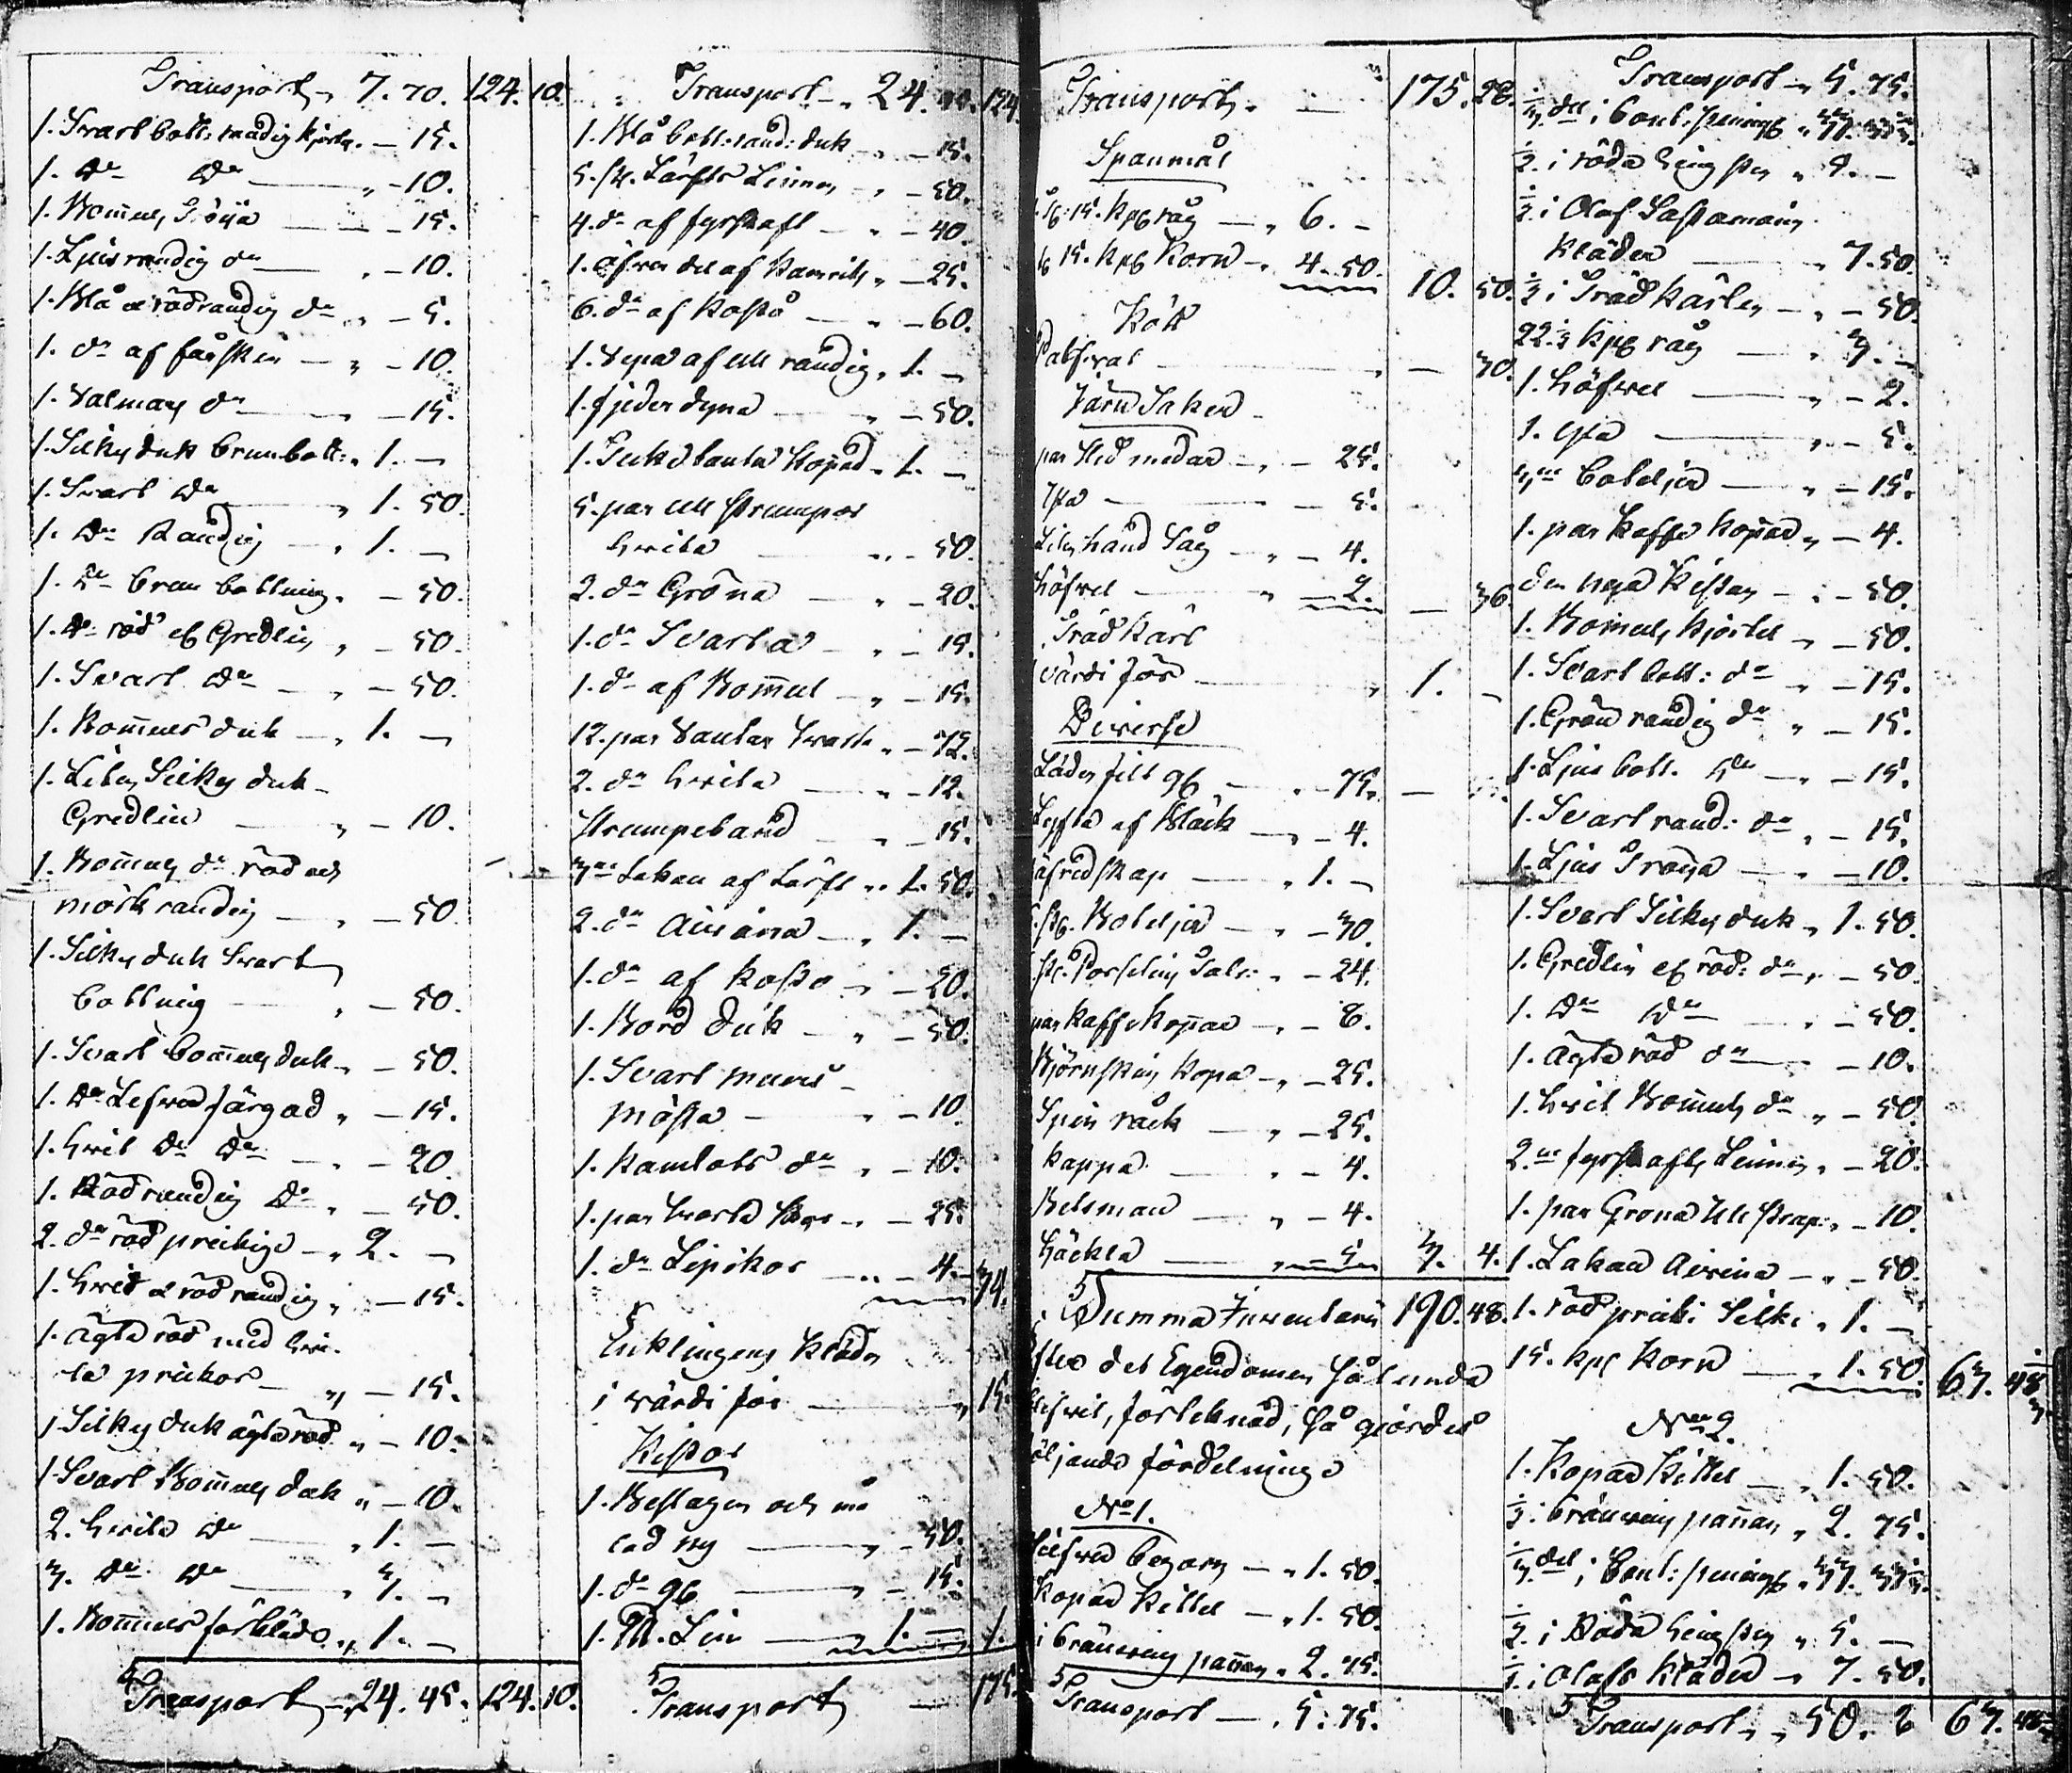 Transport „ 7. 70. 124. 10.
1. Svart bott: randig kjortel „ — 15.
1. Do Do — „ — 10.
1. Bommuls Tröija — — 15.
1. Ljusrandig do — „ — 10.
1. Blå & rödrandig do „ — 5.
1. do af fårskin — „ — 10.
1. Valmars do — — 15.
1. Silkes duk brunbott: „ 1. —
1. Svart Do — „ 1. 50.
1. Do Randig — „ 1. —
1. Do brun bottning „ — 50.
1. Do röd & Gredlin „ — 50.
1. Svart Do — „ — 50.
1. Bommuls duk — „ 1. —
1. Liten Silkes duk
Gredlin — „ — 10.
1. Bommuls do röd och
mörk randig — „ — 50.
1. Silkes duk Svart
bottnig — „ — 50.
1. Svart bommuls duk „ — 50.
1. Do Lefverfärgad „ — 15.
1. hvit Do Do — „ — 20.
1. Rödrandig Do „ — 50.
2. do röd prickige — „ 2. —
1. hvit & röd randig „ — 15.
1. ägta röd med hvi-
ta prickor — „ — 15.
1. Silkes duk ägta röd „ — 10.
1. Svart Bommuls duk „ — 10.
2. hvita Do — „ 1. —
3. Do Do — „ 3. —
1. Bommuls förkläde „ 1. —
Transport „ 24. 45. 124. 10.
Transport „ 24. 124.
1. Blå bott: rand: duk — „ — 15.
5. st. Lärfts Linnen — „ — 50.
4. do af fyrskaft — „ — 40.
1. öfver del af Kamrik „ — 25.
6. do af — „ — 60.
1. af ull randig „ 1. —
1. fjeder dyna — „ — 50.
1. — „ 1. —
5. par ull strumpor
hvita — „ — 50.
2. do Gröna — „ — 20.
1. do Svarta — „ — 15.
1. do af Bommul — „ — 15.
12. par Vantar Svarta „ — 72.
2. do hvita — „ — 12.
Strumpeband — „ — 15.
3ne Lakan af Lärft „ 1. 50.
2. do Aivina — „ 1. —
1. do af — „ — 20.
1. Bord duk — „ — 50.
1. Svart
mössa — „ — 10.
1. Kamlots do „ — 10.
1. par Svarta „ — 25.
1. do — „ — 4. 34.
Enklingens Kläder
i värdi för — „ 15.
Kistor
1. Beslagen och må
lad ny — „ — 50.
1. do — „ — 15.
1. Lin — „ 1. — 1.
Transport — 175.
Transport „ — 175. 28.
Spanmål
15. Kpr råg — „ 6. —
15. Kpr Korn — „ 4. 50. 10. 50.
Kött
— „ — 30.
Järn Saker
par Sled medar — „ — 25.
Yxa — — 5.
Liten hand Såg — „ — 4.
Höfvel — „ — 2. — 36.
Träd Karl
värdi för — „ 1. —
Diverse
Läder — „ — 75. —
Lykta af Bläck — „ — 4.
Väfredskap — „ 1. —
st. Boteljer — „ — 30.
st. Porslins Talr: „ — 24.
par Kaffe Koppar — „ — 8.
Björnskins — „ — 25.
Spin råck — „ — 25.
Kappa — „ — 4.
Betsman — „ — 4.
Häckla — „ — 5. 3. 4.
Summa Inventarii 190. 48.
det Egendomen sålunda
blifvit förteknad, så gjordes
följande fördelninge
No 1.
Silfver begarn — „ 1. 50.
Kopar Kittel — „ 1. 50.
i bränvins pannan „ 2. 75.
Transport — „ 5. 75.
Transport „ 5. 75.
⅓ del i Cont: peningr „ 37. 33⅓.
½ i röda hingsten „ 5. —
½ i Olof
Kläder — „ 7. 50.
½ i Träd Karlen — „ — 50.
22.½ Kpr råg — „ 3. —
1. höfvel — „ — 2.
1. Yxa — „ — 5.
3ne boteljer — „ — 15.
1. par Kaffe Koppar „ — 4.
den nya Kistan — „ — 50.
1. Bommuls Kjortel „ — 50.
1. Svart bott: do — „ — 15.
1. Grön randig do „ — 15.
1. Ljus bott. do — „ — 15.
1. Svart rand: do „ — 15.
1. Ljus Tröija — „ — 10.
1. Svart Silkes duk „ 1. 50.
1. Gredlin & röd: do „ — 50.
1. Do Do — „ — 50.
1. ägta röd do — „ — 10.
1. hvit Bommuls do „ — 50.
2ne fyrskafts Linnen „ — 20.
1. par Gröna Ull strap: „ — 10.
1. Lakan Aivina — „ — 50.
1. röd prick: Silke „ 1. —
15. Kpr Korn — „ 1. 50. 63. 48⅓
No 2.
1. Kopar Kittel — „ 1. 50.
½ i bränvins pannan „ 2. 75.
⅓ del i Cont: peningr „ 37. 33⅓.
½ i Röda hingsten „ 5. —
½ i Olofs Kläder — „ 7. 50.
Transport „ 50. 8 63. 48⅓